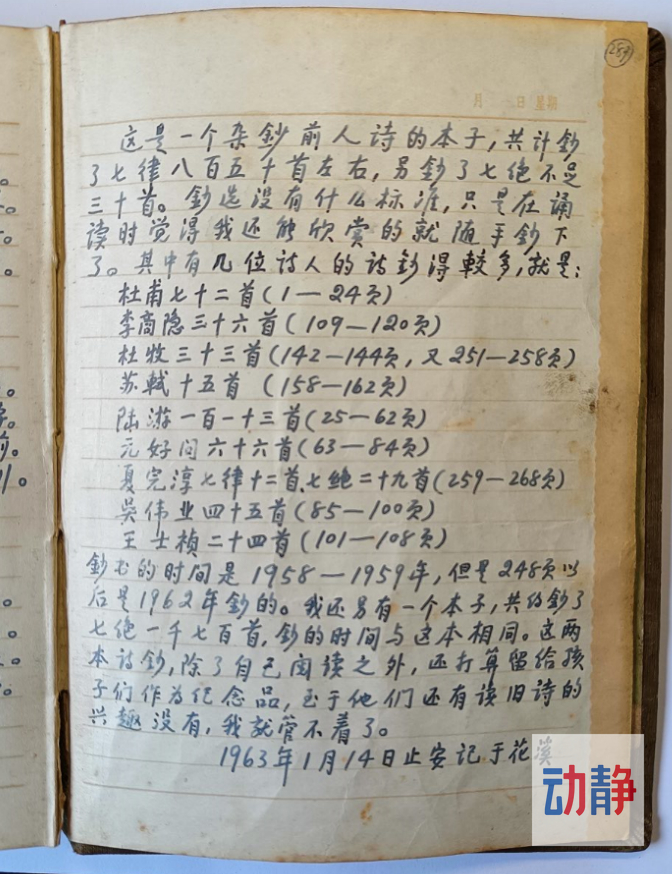 289
月 日 星期
这是一个杂鈔前人诗的本子,共计鈔
了七律八百五十首左右,另鈔了七绝不足
三十首。鈔选没有什么标准,只是在诵
读时觉得我还能欣赏的就随手鈔下
了。其中有几位诗人的诗鈔得較多,就是:
杜甫七十二首(1—24页)
李商隐三十六首(109—120页)
杜牧三十三首(142—144页,又251—258页)
苏軾十五首(158—162页)
陆游一百一十三首(25—62页)
元好问六十六首(63—84页)
夏完淳七律十二首、七绝二十九首(259—268页)
吳伟业四十五首(85—100页)
王士禎二十四首(101—108页)
鈔书的时间是1958—1959年,但是248页以
后是1962年鈔的。我还另有一个本子,共约鈔了
七绝一千七百首,鈔的时间与这本相同。这两
本诗鈔,除了自己阅读之外,还打算留给孩
子们作为纪念品,至于他们还有读旧诗的
兴趣没有,我就管不着了。
1963年1月14日止安记于花溪
动静